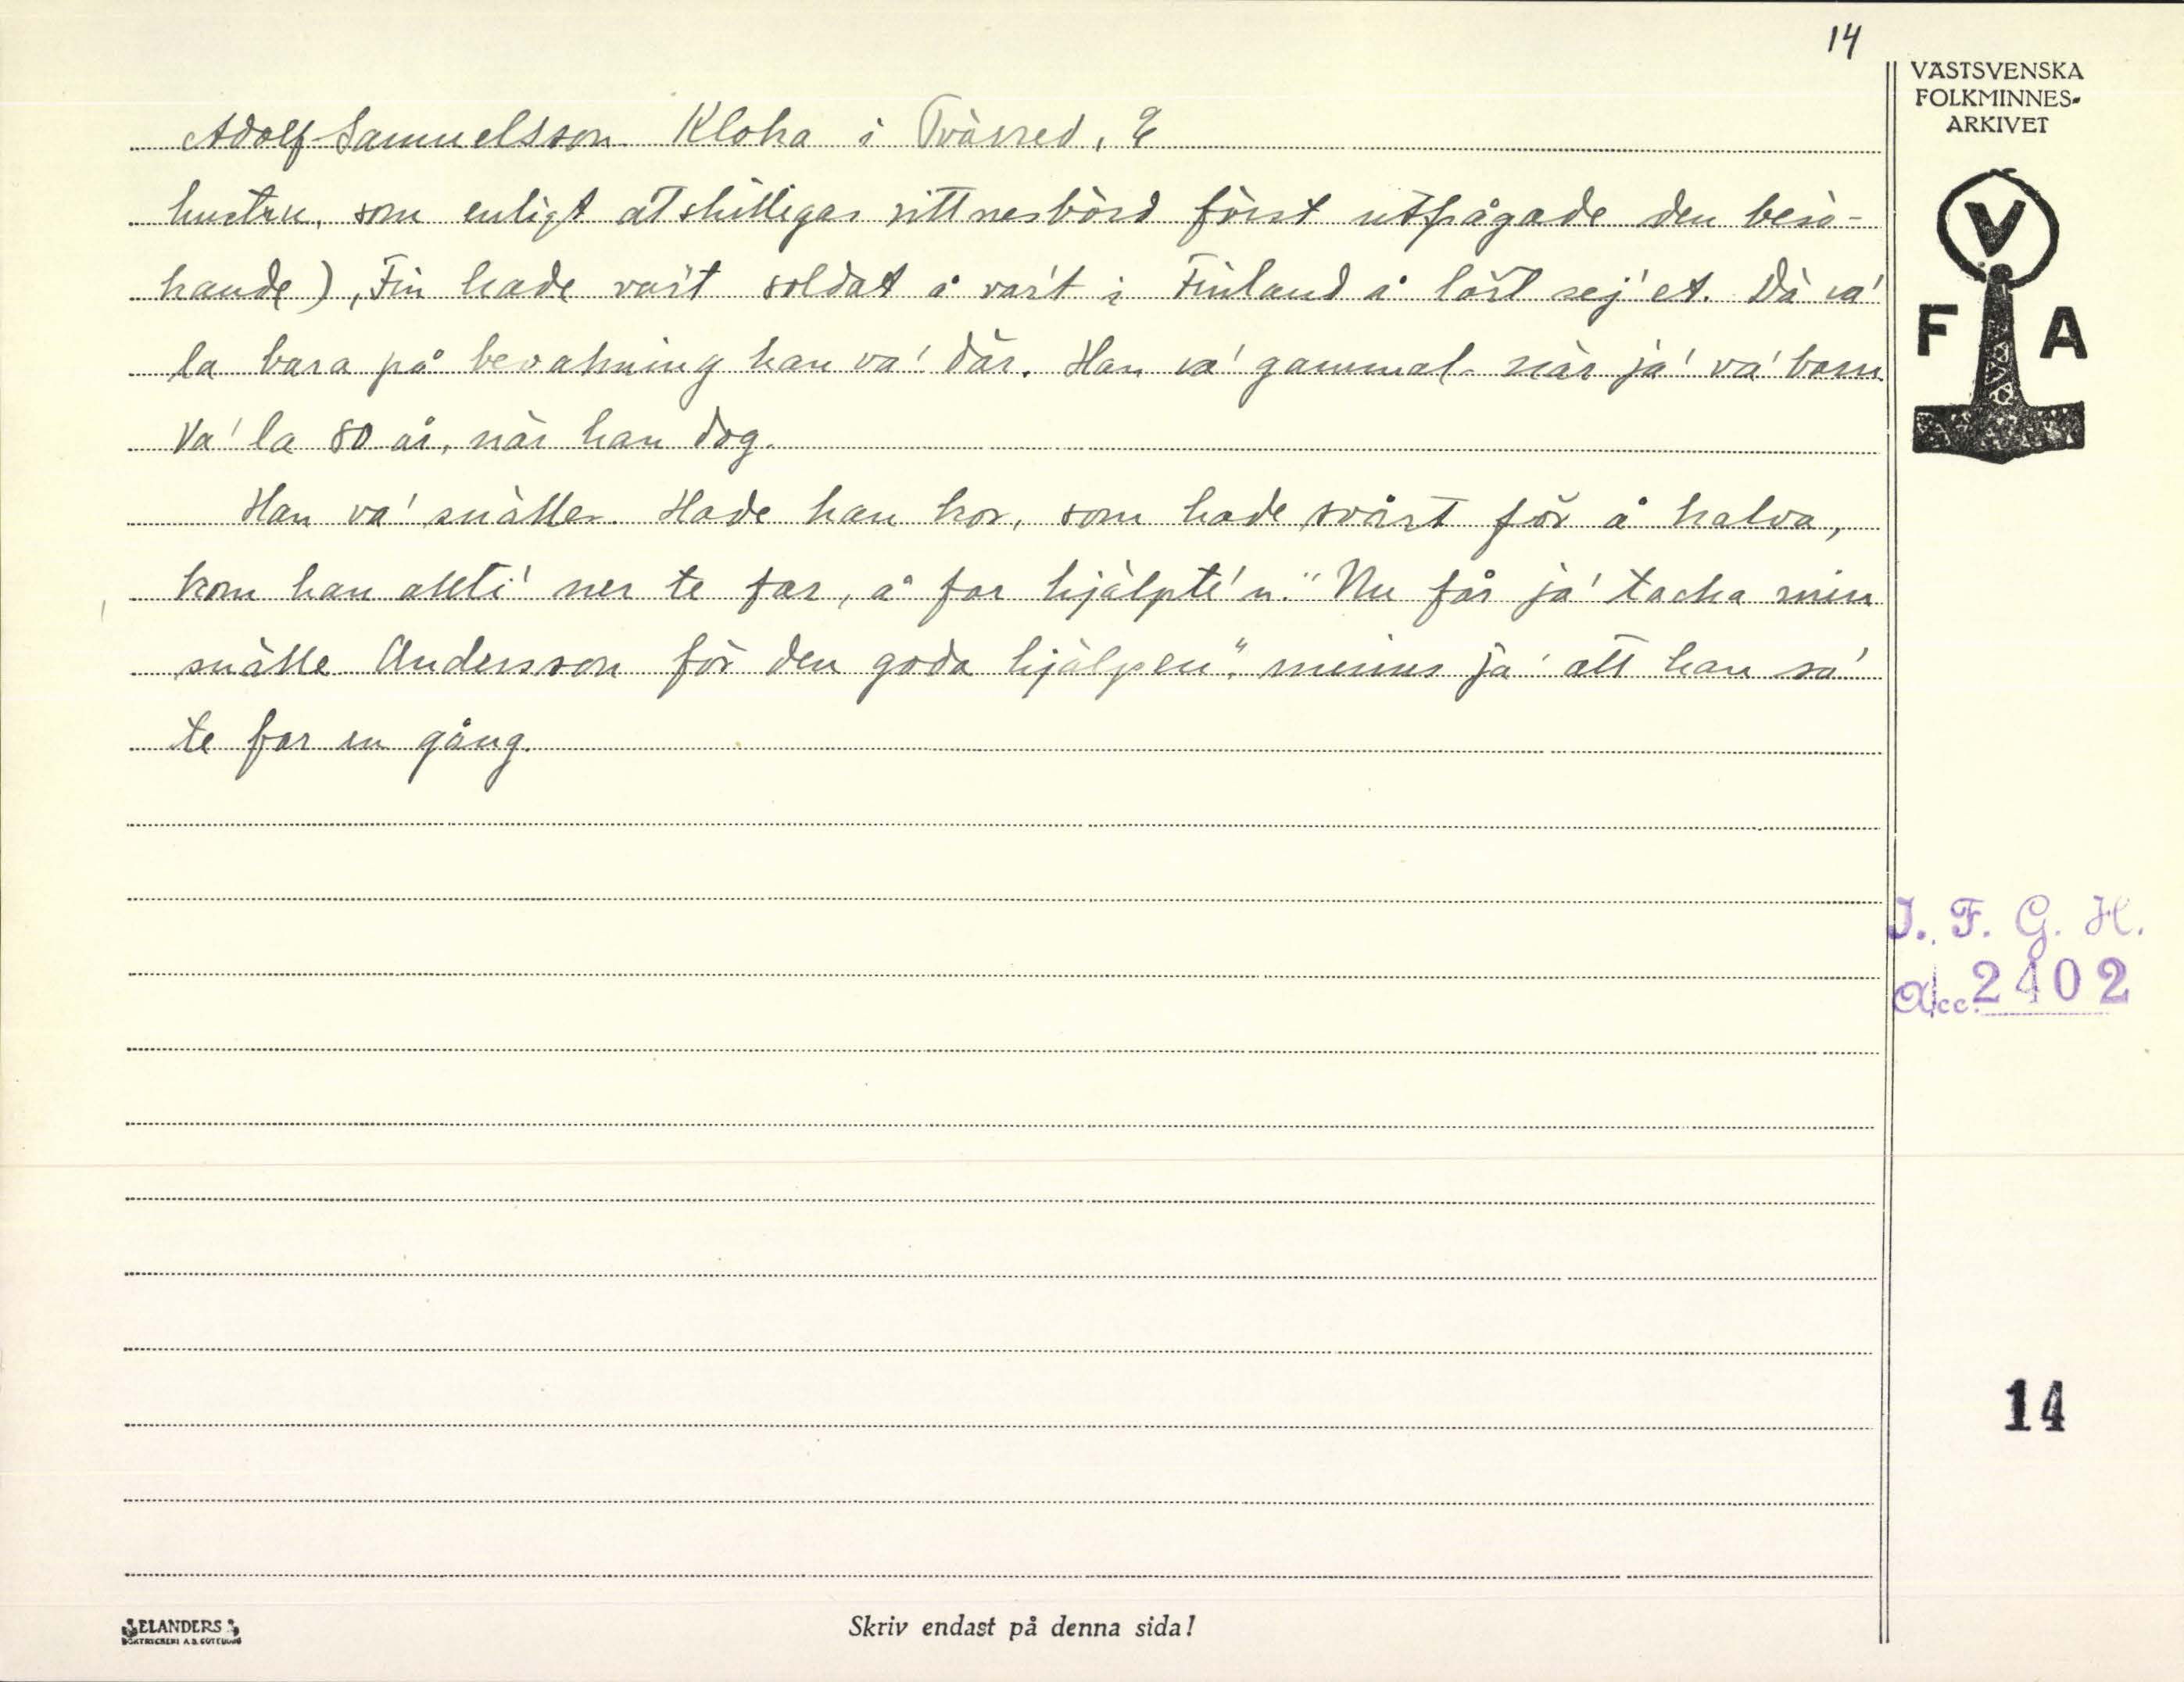 14
VÄSTSVENSKA
FOLKMINNES-
ARKIVET
Adolf Samuelsson Kloka i Tvärred,
hustru, som enligt åtskilligas vittnesbörd först utfrågade den besö-
kande), Fin hade vart soldat å vart i Finland å lärt sej'et. Dä va'
la bara på bevakning han va' där. Han va' gammal när ja' va' barn
Va' la 80 år, när han dog.
Han va' snäller. Hade han kor, som hade svårt för å kalva,
kom han allti' ner te far, å far hjälpte'n. "Nu får ja' tacka min
snälle Andersson för den goda hjälpen", minns ja' att han sa'
te far en gång.
V
F A
I. F. G. H.
Acc. 2402
14
ELANDERS
BOKTRYCKERI A.B. GÖTEBORG
Skriv endast på denna sida!